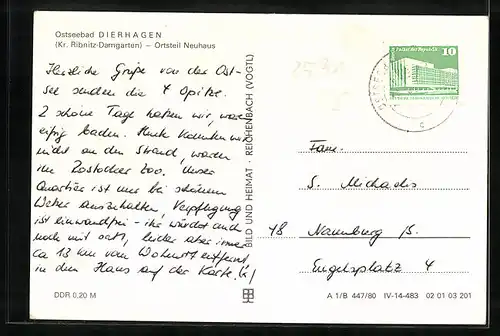 Ostseebad DIERHAGEN
(Kr. Ribnitz-Damgarten) – Ortsteil Neuhaus
Herzliche Grüße von der Ost-
see senden die 4 Opitze.
2 schöne Tage hatten wir, waren
eifrig baden. Heute konnten wir
nicht an den Strand, waren
im Rostocker Zoo. Unser
Quartier ist nur bei schönem
Wetter auszuhalten, Verpflegung
ist einwandfrei - ihr würdet auch
noch mit satt, leider aber immer
ca 13 km vom Wohnort entfernt
in dem Haus auf der Karte.
DDR 0,20 M
BILD UND HEIMAT · REICHENBACH (VOGTL)
10
Fam.
S. Michaelis
48 Naumburg /S.
Engelsplatz 4
A 1/B 447/80 IV-14-483 02 01 03 201